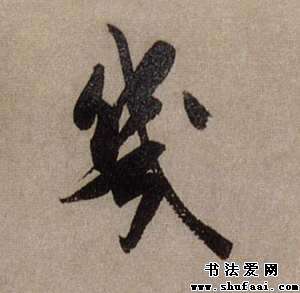 幾
书法爱网
www.shufaai.com